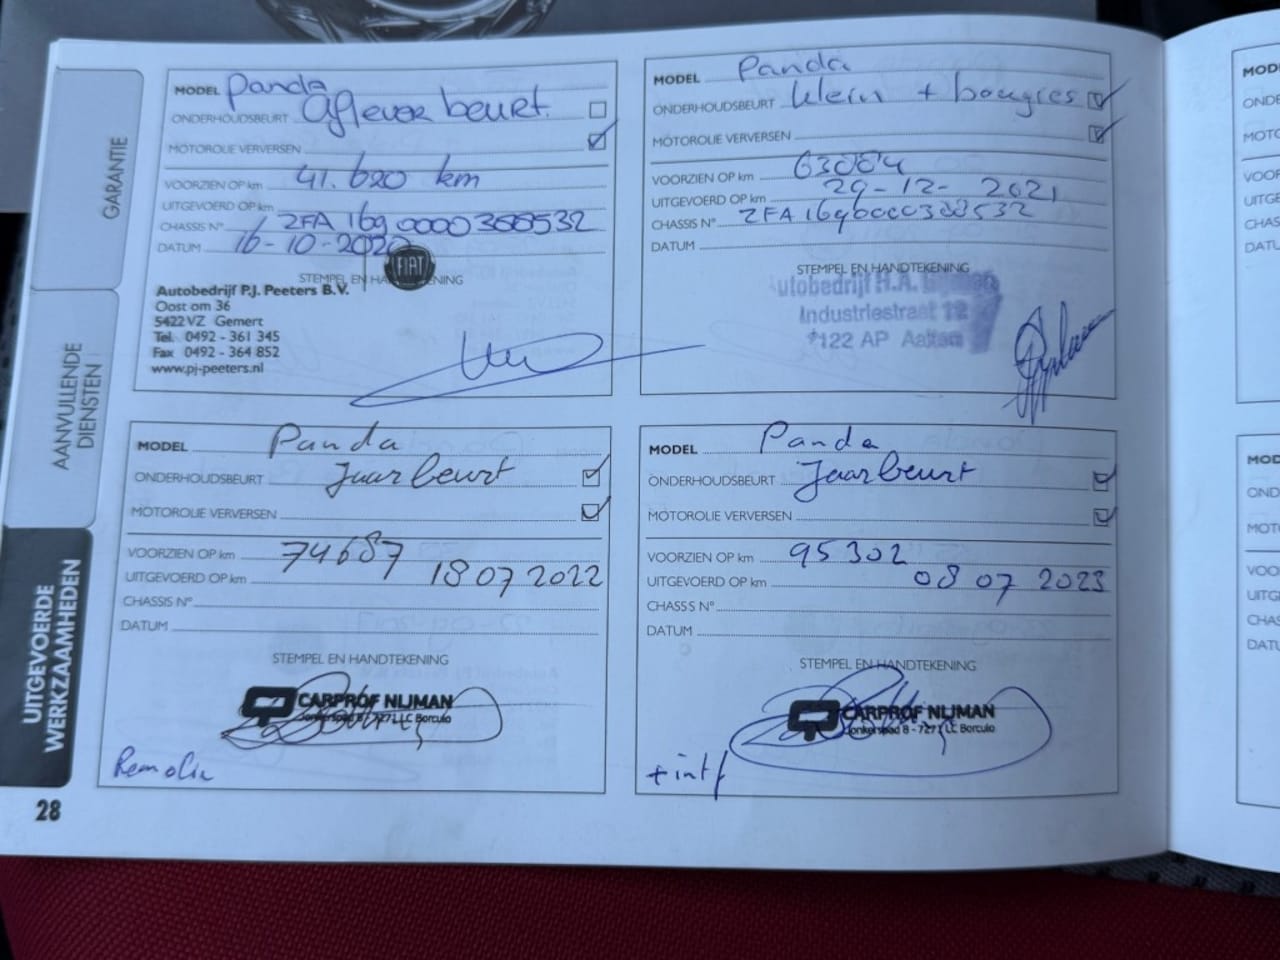 GARANTIE
AANVULLENDE
DIENSTEN
UITGEVOERDE
WERKZAAMHEDEN
28
MODEL Panda
ONDERHOUDSBEURT Aflever beurt.
MOTOROLIE VERVERSEN
VOORZIEN OP km 41.620 km
UITGEVOERD OP km
CHASSIS N° ZFA 169
DATUM 16-10-2020
STEMPEL EN HANDTEKENING
FIAT
Autobedrijf P.J. Peeters B.V.
Oost om 36
5422 VZ Gemert
Tel. 0492 - 361 345
Fax 0492 - 364 852
www.pj-peeters.nl
MODEL Panda
ONDERHOUDSBEURT klein + bougies
MOTOROLIE VERVERSEN
VOORZIEN OP km 63004
UITGEVOERD OP km 29-12-2021
CHASSIS N° ZFA
DATUM
STEMPEL EN HANDTEKENING
Autobedrijf H.A.
Industriestraat 12
7122 AP Aalten
MODEL Panda
ONDERHOUDSBEURT Jaarbeurt
MOTOROLIE VERVERSEN
VOORZIEN OP km 74687
UITGEVOERD OP km 18 07 2022
CHASSIS N°
DATUM
STEMPEL EN HANDTEKENING
CARPROF NIJMAN
Jonkerspad 8 - 7271 LC Borculo
Rem olie
MODEL Panda
ONDERHOUDSBEURT Jaarbeurt
MOTOROLIE VERVERSEN
VOORZIEN OP km 95302
UITGEVOERD OP km 08 07 2023
CHASSIS N°
DATUM
STEMPEL EN HANDTEKENING
CARPROF NIJMAN
Jonkerspad 8 - 7271 LC Borculo